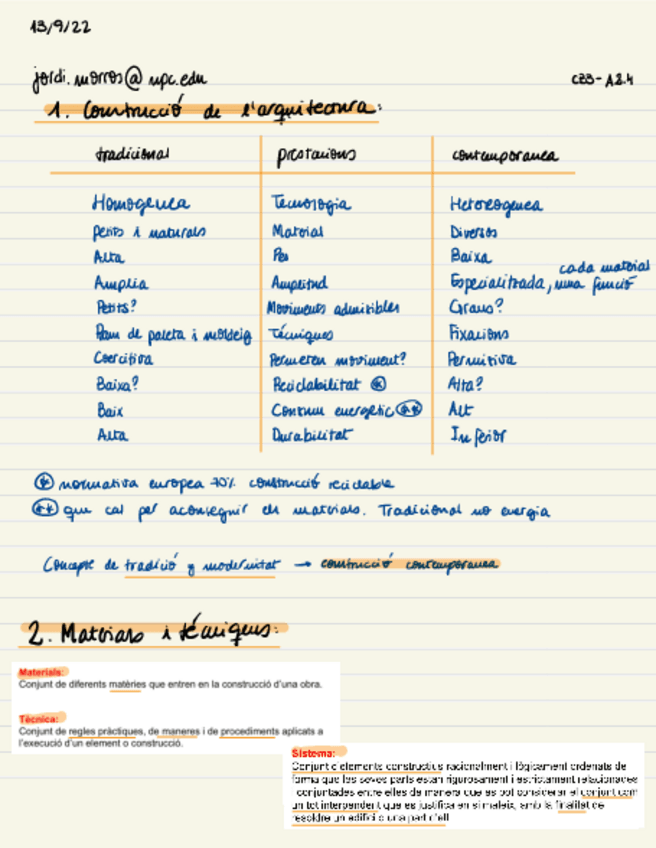 13/9/22
jordi.morros@upc.edu
CBB-A2.4
1. Construcció de l'arquitectura:
tradicional prestacions contemporanea
Homogenea Tecnologia Heterogenea
petits i naturals Material Diversos
Alta Pes Baixa
Amplia Amplitud Especialitzada, cada material una funció
Petits? Moviments admisibles Grans?
Ram de paleta i motlleig Técniques Fixacions
Coercitiva Permeten moviment? Permitiva
Baixa? Reciclabilitat * Alta?
Baix Consum energètic ** Alt
Alta Durabilitat Inferior
* normativa europea 70% construcció reciclable
** que cal per aconseguir els materials. Tradicional no energia
Concepte de tradició y modernitat → construcció contemporanea
2. Materials i técniques:
Materials:
Conjunt de diferents matèries que entren en la construcció d'una obra.
Tècnica:
Conjunt de regles pràctiques, de maneres i de procediments aplicats a
l'execució d'un element o construcció.
Sistema:
Conjunt d'elements constructius racionalment i lògicament ordenats de
forma que les seves parts estan rigurosament i estrictament relacionades
i conjuntades entre elles de manera que es pot considerar el conjunt com
un tot interpendent que es justifica en si mateix, amb la finalitat de
resoldre un edifici o una part d'ell